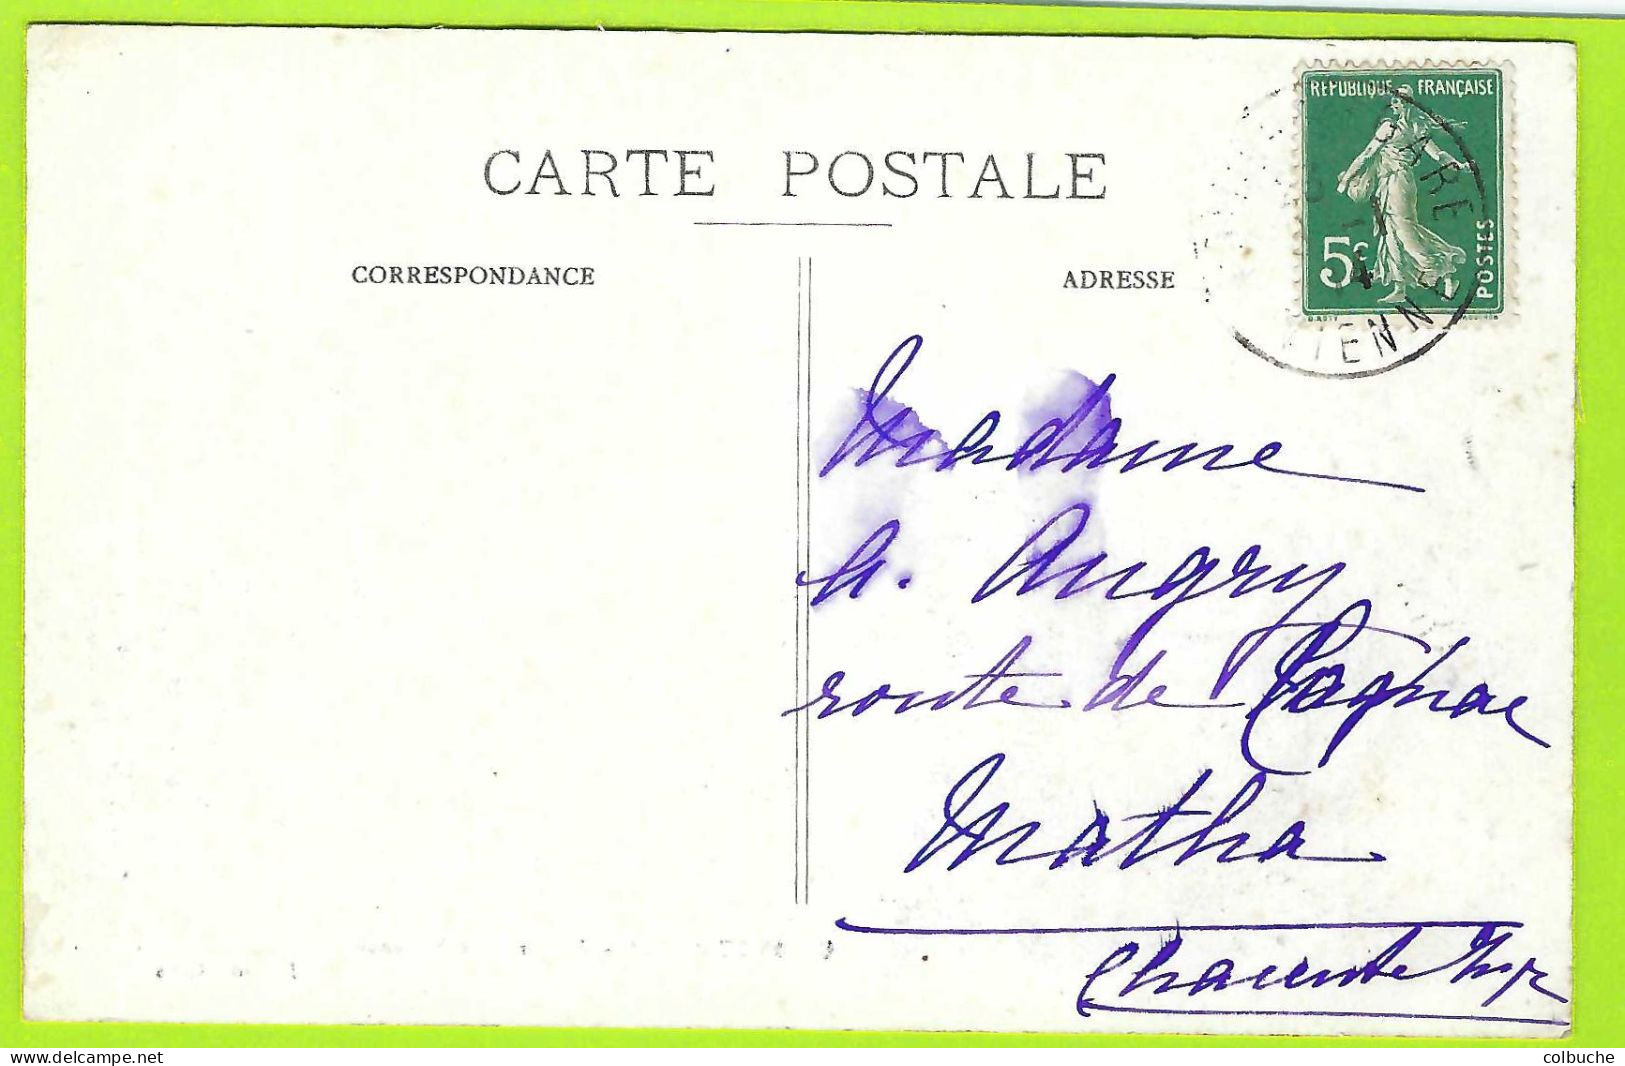 CARTE POSTALE
CORRESPONDANCE
ADRESSE
REPUBLIQUE FRANÇAISE
5c
POSTES
GARE
TIENNE
Madame
A. Augry
route de Cognac
Matha
Charente Infre
colbuche